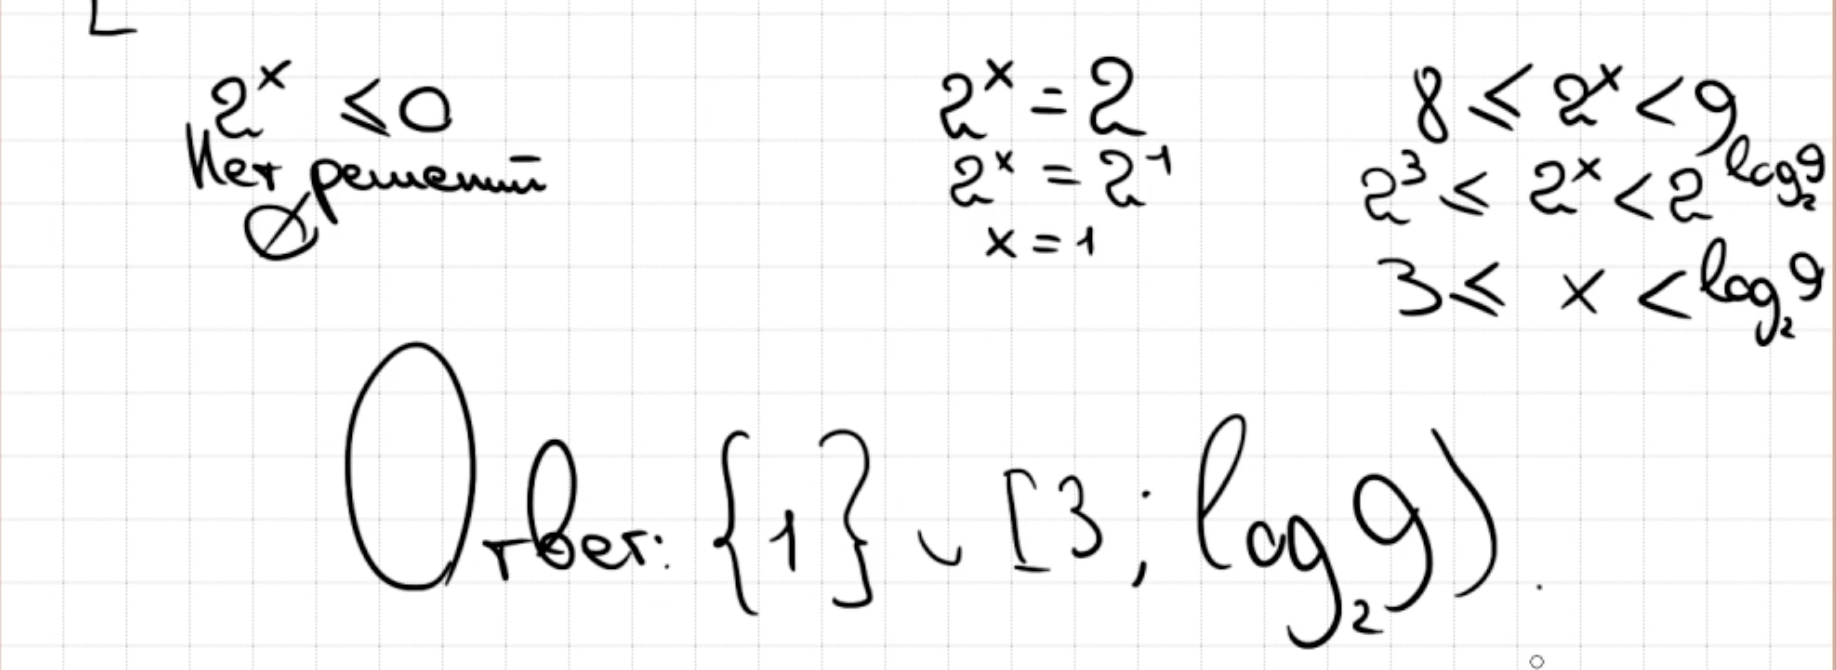 2^x ≤ 0
Нет решений
∅
2^x = 2
2^x = 2^1
x = 1
8 ≤ 2^x < 9
2^3 ≤ 2^x < 2^{log_2 9}
3 ≤ x < log_2 9
Ответ: {1} ∪ [3; log_2 9).